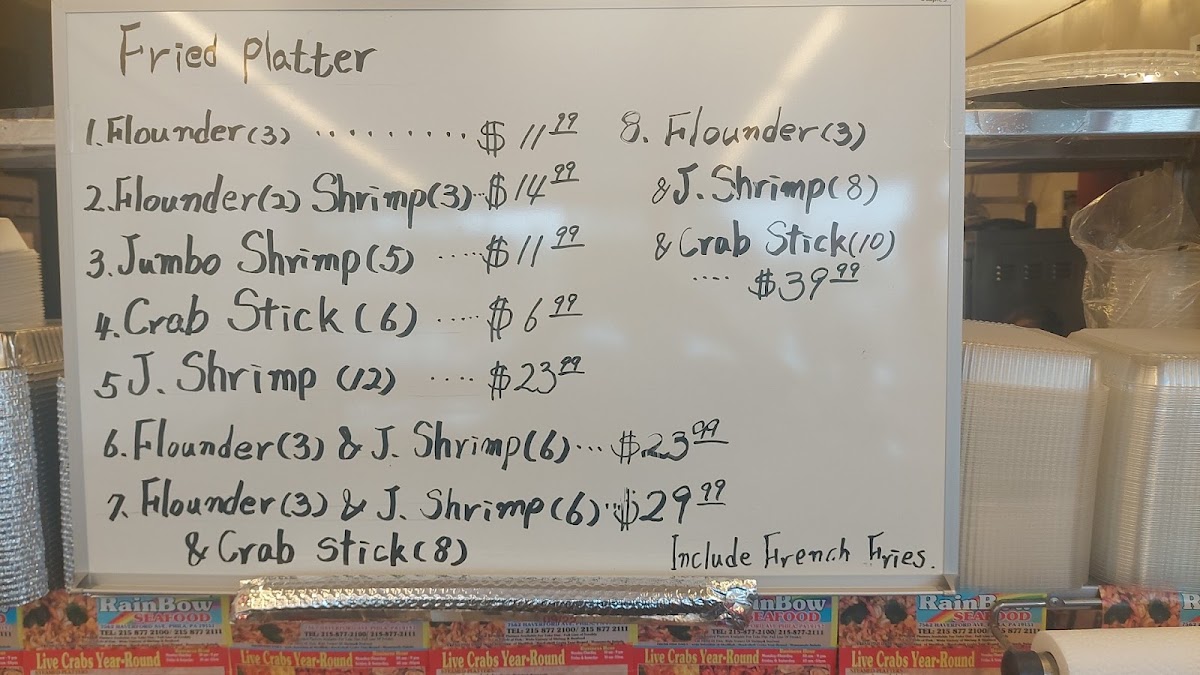 Fried Platter
1. Flounder(3) ......... $11.99
2. Flounder(2) Shrimp(3)... $14.99
3. Jumbo Shrimp(5) ..... $11.99
4. Crab Stick (6) ..... $6.99
5 J. Shrimp (12) .... $23.99
6. Flounder(3) & J. Shrimp(6)... $23.99
7. Flounder(3) & J. Shrimp(6)... $29.99
& Crab Stick(8)
8. Flounder(3)
& J. Shrimp(8)
& Crab Stick(10)
.... $39.99
Include French Fries.
RainBow
SEAFOOD
TEL: 215 877 2100/ 215 877 2111
Live Crabs Year-Round
TEL: 215-877-2100/ 215-877-2111
Live Crabs Year-Round
RainBow
SEAFOOD
TEL: 215 877 2100/ 215 877 2111
Live Crabs Year-Round
RainBow
SEAFOOD
Live Crabs Year-Round